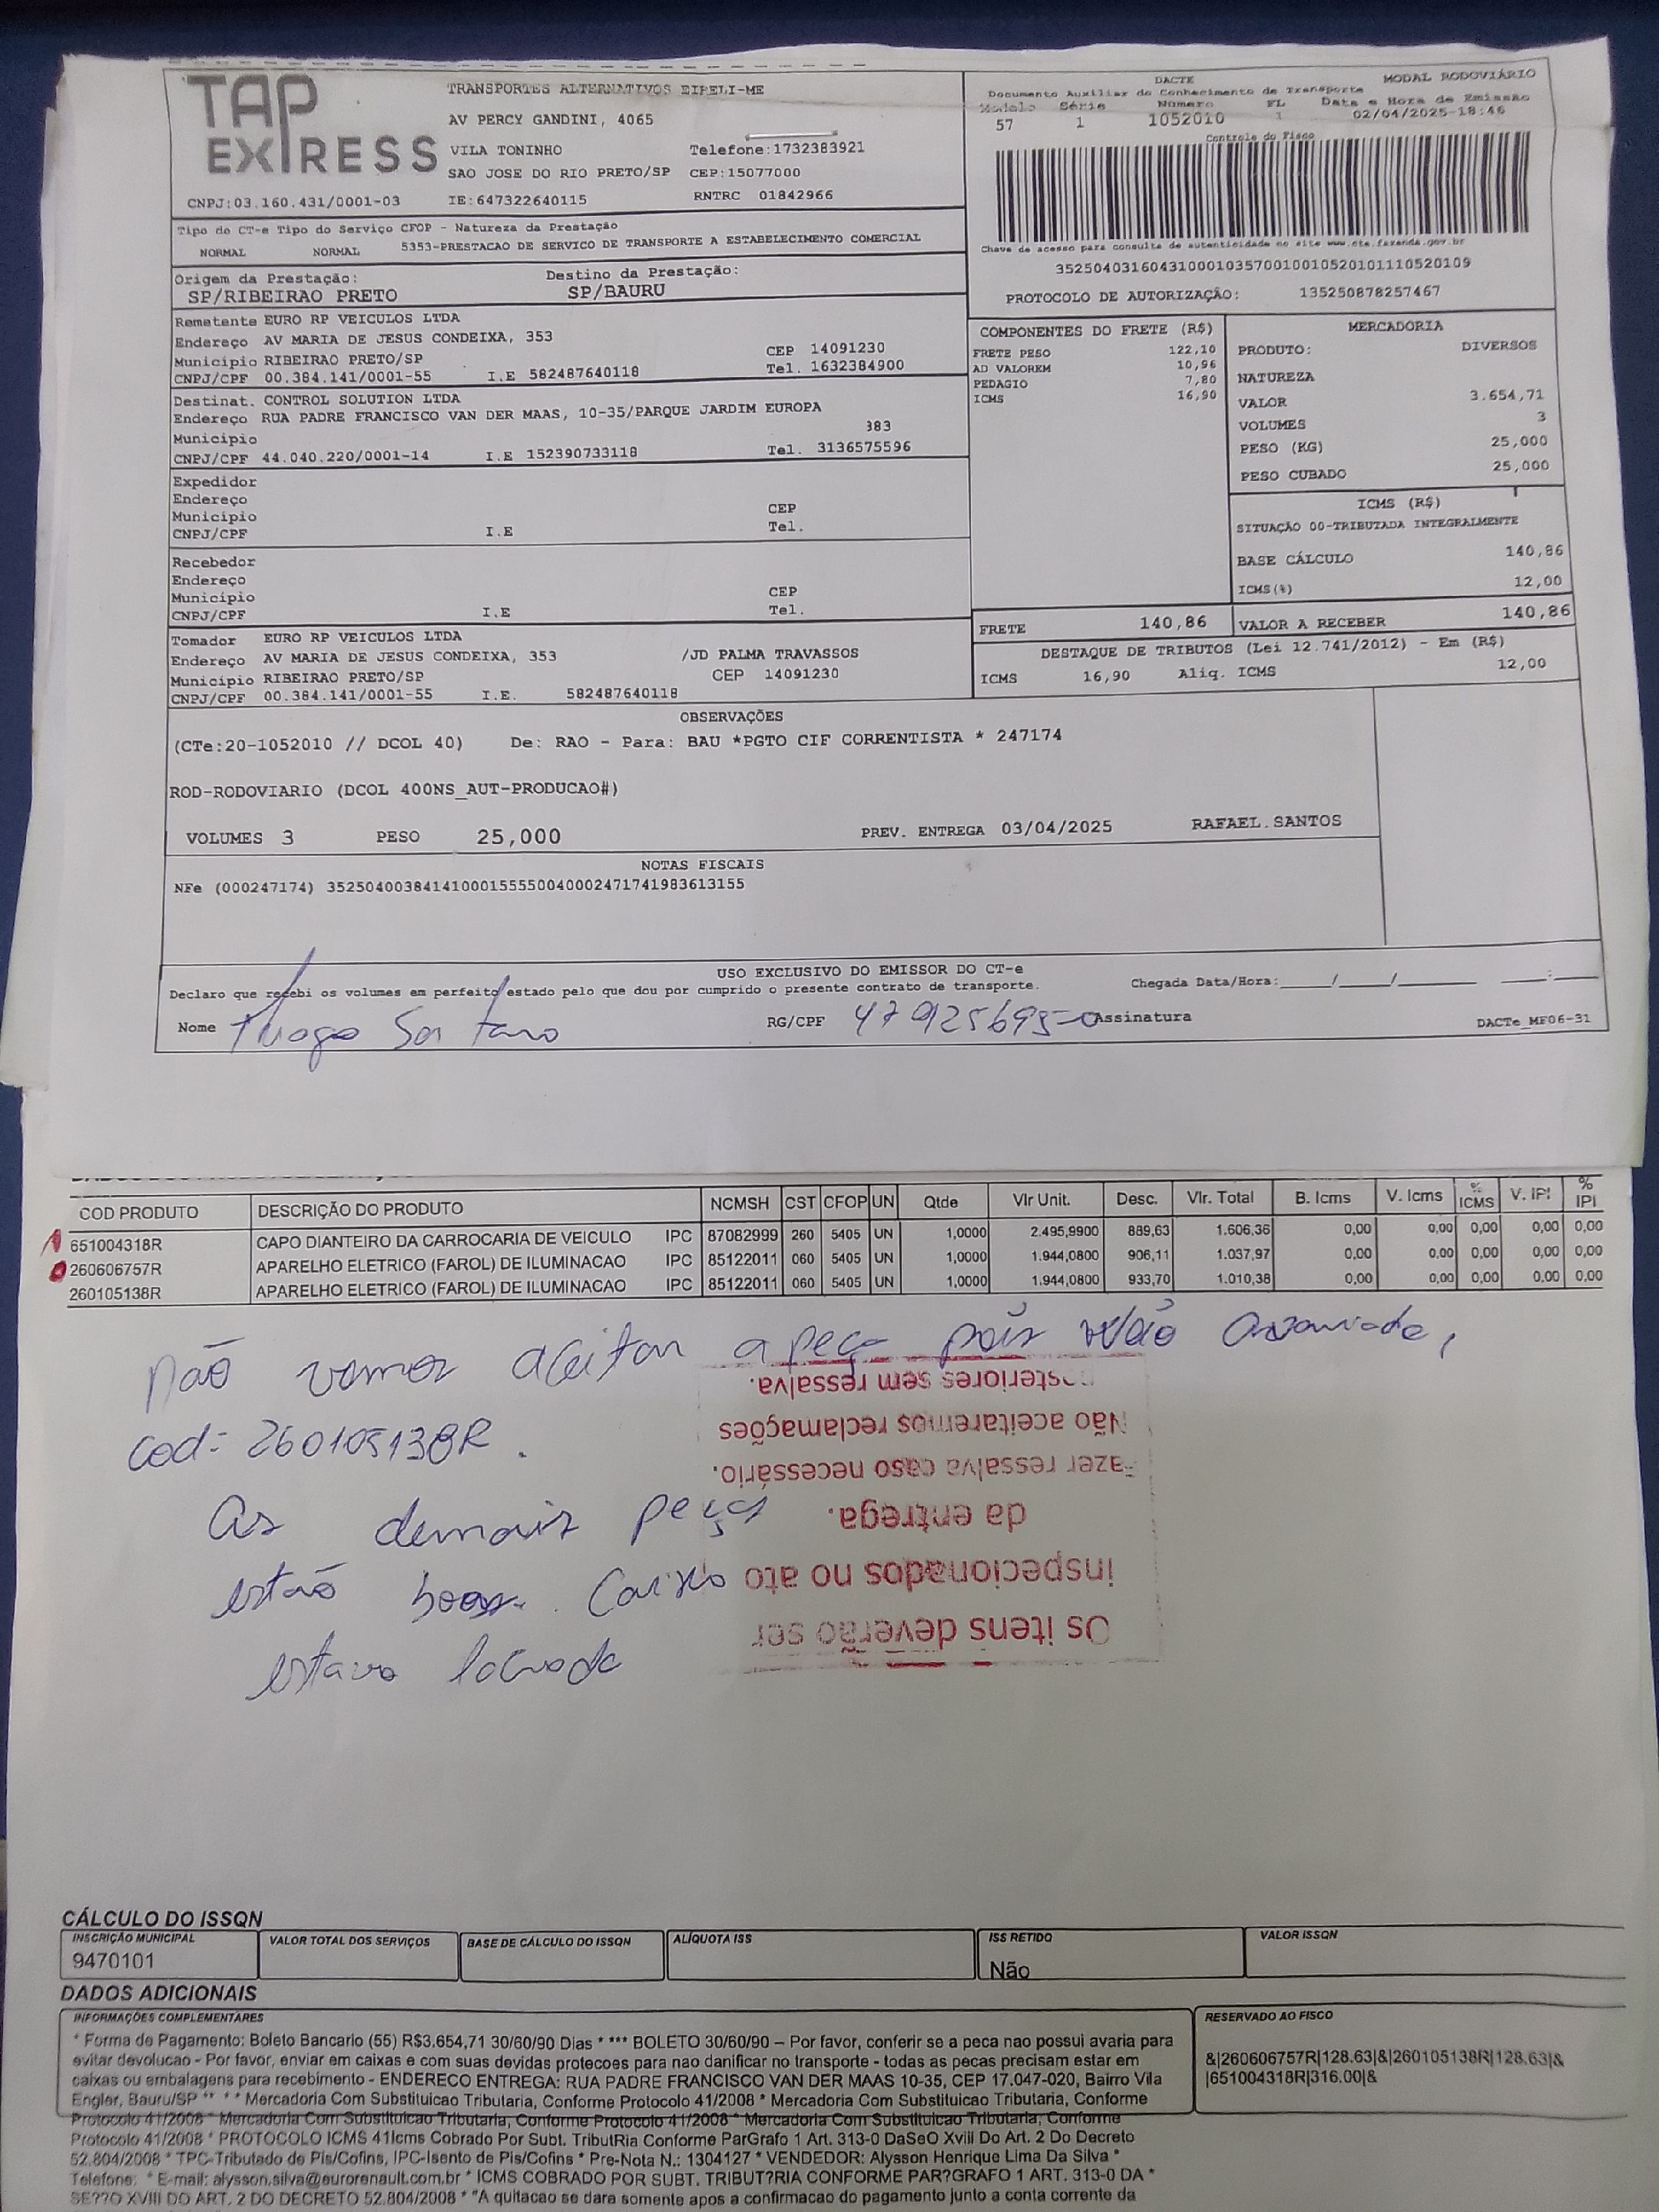 TAP EXPRESS
TRANSPORTES ALTERNATIVOS EIRELI-ME
AV PERCY GANDINI, 4065
VILA TONINHO Telefone:1732383921
SAO JOSE DO RIO PRETO/SP CEP:15077000
CNPJ:03.160.431/0001-03 IE:647322640115 RNTRC 01842966
DACTE MODAL RODOVIÁRIO
Documento Auxiliar do Conhecimento de Transporte
Modelo Série Número FL Data e Hora de Emissão
57 1 1052010 1 02/04/2025-18:46
Controle do Fisco
Chave de acesso para consulta de autenticidade no site www.cte.fazenda.gov.br
35250403160431000103570010010520101110520109
PROTOCOLO DE AUTORIZAÇÃO: 135250878257467
Tipo do CT-e Tipo do Serviço CFOP - Natureza da Prestação
NORMAL NORMAL 5353-PRESTACAO DE SERVICO DE TRANSPORTE A ESTABELECIMENTO COMERCIAL
Origem da Prestação: Destino da Prestação:
SP/RIBEIRAO PRETO SP/BAURU
Remetente EURO RP VEICULOS LTDA
Endereço AV MARIA DE JESUS CONDEIXA, 353
Município RIBEIRAO PRETO/SP CEP 14091230
CNPJ/CPF 00.384.141/0001-55 I.E 582487640118 Tel. 1632384900
Destinat. CONTROL SOLUTION LTDA
Endereço RUA PADRE FRANCISCO VAN DER MAAS, 10-35/PARQUE JARDIM EUROPA
Município 383
CNPJ/CPF 44.040.220/0001-14 I.E 152390733118 Tel. 3136575596
Expedidor
Endereço
Município CEP
CNPJ/CPF I.E Tel.
Recebedor
Endereço
Município CEP
CNPJ/CPF I.E Tel.
Tomador EURO RP VEICULOS LTDA
Endereço AV MARIA DE JESUS CONDEIXA, 353 /JD PALMA TRAVASSOS
Município RIBEIRAO PRETO/SP CEP 14091230
CNPJ/CPF 00.384.141/0001-55 I.E. 582487640118
COMPONENTES DO FRETE (R$)
FRETE PESO 122,10
AD VALOREM 10,96
PEDAGIO 7,80
ICMS 16,90
MERCADORIA
PRODUTO: DIVERSOS
NATUREZA
VALOR 3.654,71
VOLUMES 3
PESO (KG) 25,000
PESO CUBADO 25,000
ICMS (R$)
SITUAÇÃO 00-TRIBUTADA INTEGRALMENTE
BASE CÁLCULO 140,86
ICMS(%) 12,00
FRETE 140,86 VALOR A RECEBER 140,86
DESTAQUE DE TRIBUTOS (Lei 12.741/2012) - Em (R$)
ICMS 16,90 Aliq. ICMS 12,00
OBSERVAÇÕES
(CTe:20-1052010 // DCOL 40) De: RAO - Para: BAU *PGTO CIF CORRENTISTA * 247174
ROD-RODOVIARIO (DCOL 400NS_AUT-PRODUCAO#)
VOLUMES 3 PESO 25,000 PREV. ENTREGA 03/04/2025 RAFAEL.SANTOS
NOTAS FISCAIS
NFe (000247174) 35250400384141000155550040002471741983613155
USO EXCLUSIVO DO EMISSOR DO CT-e
Declaro que recebi os volumes em perfeito estado pelo que dou por cumprido o presente contrato de transporte. Chegada Data/Hora:____/____/______ ____:____
Nome Thiago Santano RG/CPF 479125695-0 Assinatura DACTe_MF06-31
COD PRODUTO DESCRIÇÃO DO PRODUTO NCMSH CST CFOP UN Qtde Vlr Unit. Desc. Vlr. Total B. Icms V. Icms % ICMS V. IPI % IPI
651004318R CAPO DIANTEIRO DA CARROCARIA DE VEICULO IPC 87082999 260 5405 UN 1,0000 2.495,9900 889,63 1.606,36 0,00 0,00 0,00 0,00 0,00
260606757R APARELHO ELETRICO (FAROL) DE ILUMINACAO IPC 85122011 060 5405 UN 1,0000 1.944,0800 906,11 1.037,97 0,00 0,00 0,00 0,00 0,00
260105138R APARELHO ELETRICO (FAROL) DE ILUMINACAO IPC 85122011 060 5405 UN 1,0000 1.944,0800 933,70 1.010,38 0,00 0,00 0,00 0,00 0,00
não vamos aceitar a peça pois estão avariada,
cod: 260105138R.
As demais peças
estão boas. Caixa
estava lacrada
Os itens deverão ser
inspecionados no ato
da entrega.
Fazer ressalva caso necessário.
Não aceitaremos reclamações
posteriores sem ressalva.
CÁLCULO DO ISSQN
INSCRIÇÃO MUNICIPAL VALOR TOTAL DOS SERVIÇOS BASE DE CÁLCULO DO ISSQN ALÍQUOTA ISS ISS RETIDO VALOR ISSQN
9470101 Não
DADOS ADICIONAIS
INFORMAÇÕES COMPLEMENTARES
* Forma de Pagamento: Boleto Bancario (55) R$3.654,71 30/60/90 Dias * *** BOLETO 30/60/90 – Por favor, conferir se a peca nao possui avaria para
evitar devolucao - Por favor, enviar em caixas e com suas devidas protecoes para nao danificar no transporte - todas as pecas precisam estar em
caixas ou embalagens para recebimento - ENDERECO ENTREGA: RUA PADRE FRANCISCO VAN DER MAAS 10-35, CEP 17.047-020, Bairro Vila
Engler, Bauru/SP ** * * Mercadoria Com Substituicao Tributaria, Conforme Protocolo 41/2008 * Mercadoria Com Substituicao Tributaria, Conforme
Protocolo 41/2008 * Mercadoria Com Substituicao Tributaria, Conforme Protocolo 41/2008 * Mercadoria Com Substituicao Tributaria, Conforme
Protocolo 41/2008 * PROTOCOLO ICMS 41Icms Cobrado Por Subt. TributRia Conforme ParGrafo 1 Art. 313-0 DaSeO Xviii Do Art. 2 Do Decreto
52.804/2008 * TPC-Tributado de Pis/Cofins, IPC-Isento de Pis/Cofins * Pre-Nota N.: 1304127 * VENDEDOR: Alysson Henrique Lima Da Silva *
Telefone: * E-mail: alysson.silva@eurorenault.com.br * ICMS COBRADO POR SUBT. TRIBUT?RIA CONFORME PAR?GRAFO 1 ART. 313-0 DA *
SE??O XVIII DO ART. 2 DO DECRETO 52.804/2008 * "A quitacao se dara somente apos a confirmacao do pagamento junto a conta corrente da
RESERVADO AO FISCO
&|260606757R|128.63|&|260105138R|128.63|&
|651004318R|316.00|&